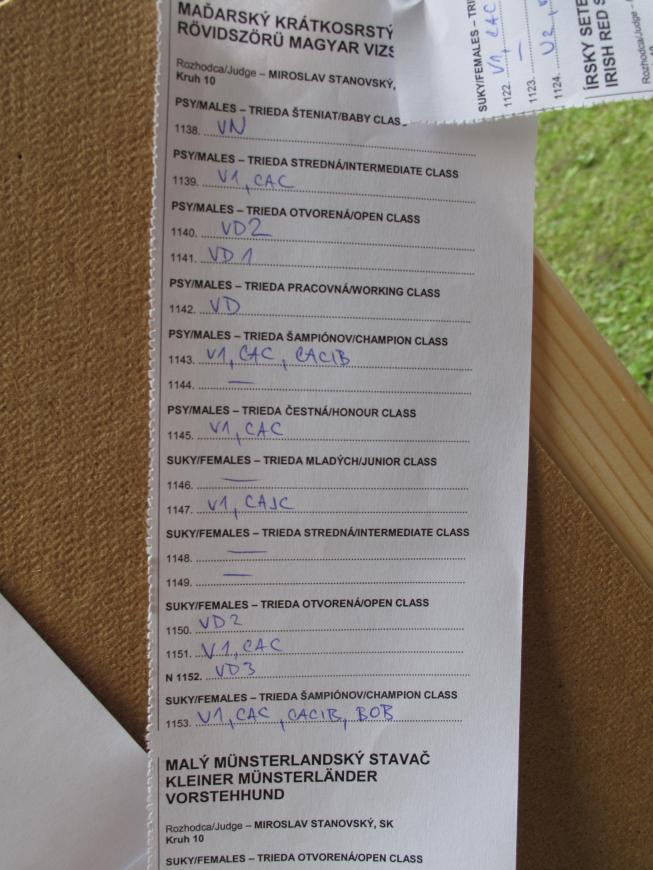 MAĎARSKÝ KRÁTKOSRSTÝ
RÖVIDSZÖRÜ MAGYAR VIZS
Rozhodca/Judge – MIROSLAV STANOVSKÝ,
Kruh 10
PSY/MALES – TRIEDA ŠTENIAT/BABY CLAS
1138. VN
PSY/MALES – TRIEDA STREDNÁ/INTERMEDIATE CLASS
1139. V1, CAC
PSY/MALES – TRIEDA OTVORENÁ/OPEN CLASS
1140. VD2
1141. VD1
PSY/MALES – TRIEDA PRACOVNÁ/WORKING CLASS
1142. VD
PSY/MALES – TRIEDA ŠAMPIÓNOV/CHAMPION CLASS
1143. V1, CAC, CACIB
1144. —
PSY/MALES – TRIEDA ČESTNÁ/HONOUR CLASS
1145. V1, CAC
SUKY/FEMALES – TRIEDA MLADÝCH/JUNIOR CLASS
1146. —
1147. V1, CAJC
SUKY/FEMALES – TRIEDA STREDNÁ/INTERMEDIATE CLASS
1148. —
1149. —
SUKY/FEMALES – TRIEDA OTVORENÁ/OPEN CLASS
1150. VD2
1151. V1, CAC
N 1152. VD3
SUKY/FEMALES – TRIEDA ŠAMPIÓNOV/CHAMPION CLASS
1153. V1, CAC, CACIB, BOB
MALÝ MÜNSTERLANDSKÝ STAVAČ
KLEINER MÜNSTERLÄNDER
VORSTEHHUND
Rozhodca/Judge – MIROSLAV STANOVSKÝ, SK
Kruh 10
SUKY/FEMALES – TRIEDA OTVORENÁ/OPEN CLASS
SUKY/FEMALES – TRI
1122. V1, CAC
1123. —
1124. V2,
ÍRSKY SETE
IRISH RED S
Rozhodca/Judge –